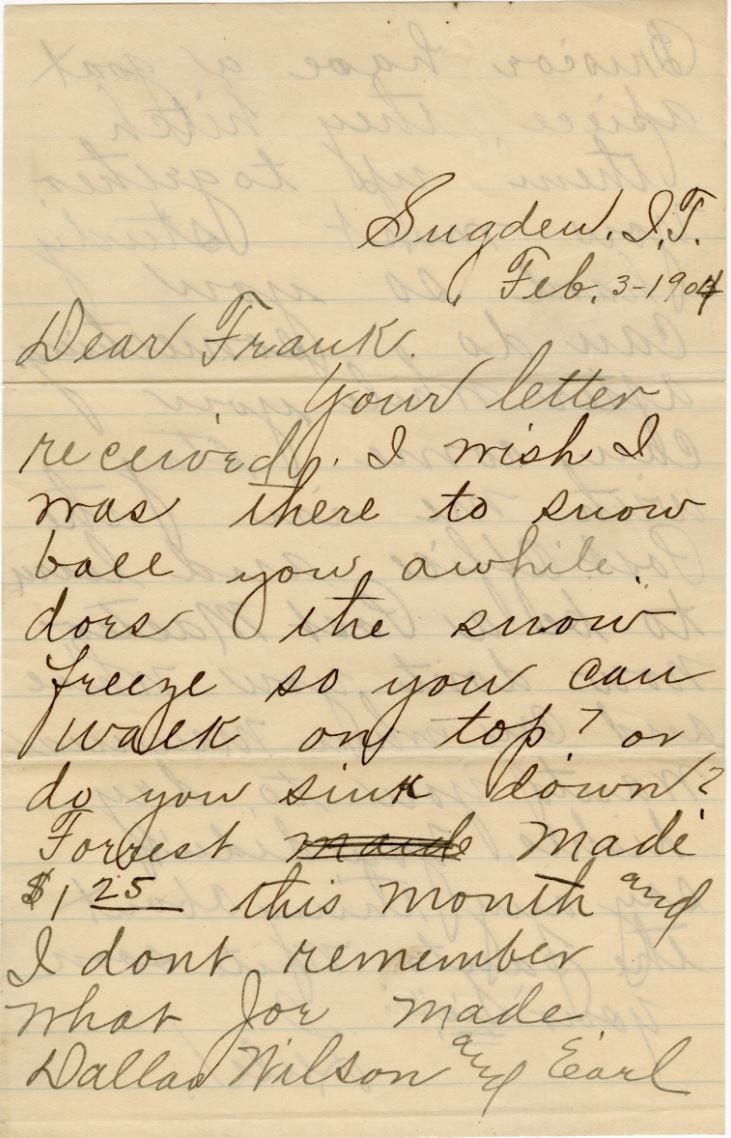 Sugden, I.T.
Feb. 3-1904
Dear Frank.
Your letter
received. I wish I
was there to snow
ball you awhile.
does the snow
freeze so you can
walk on top? or
do you sink down?
Forrest made
$1 25 this month and
I dont remember
what Joe made
Dallas Wilson and Earl